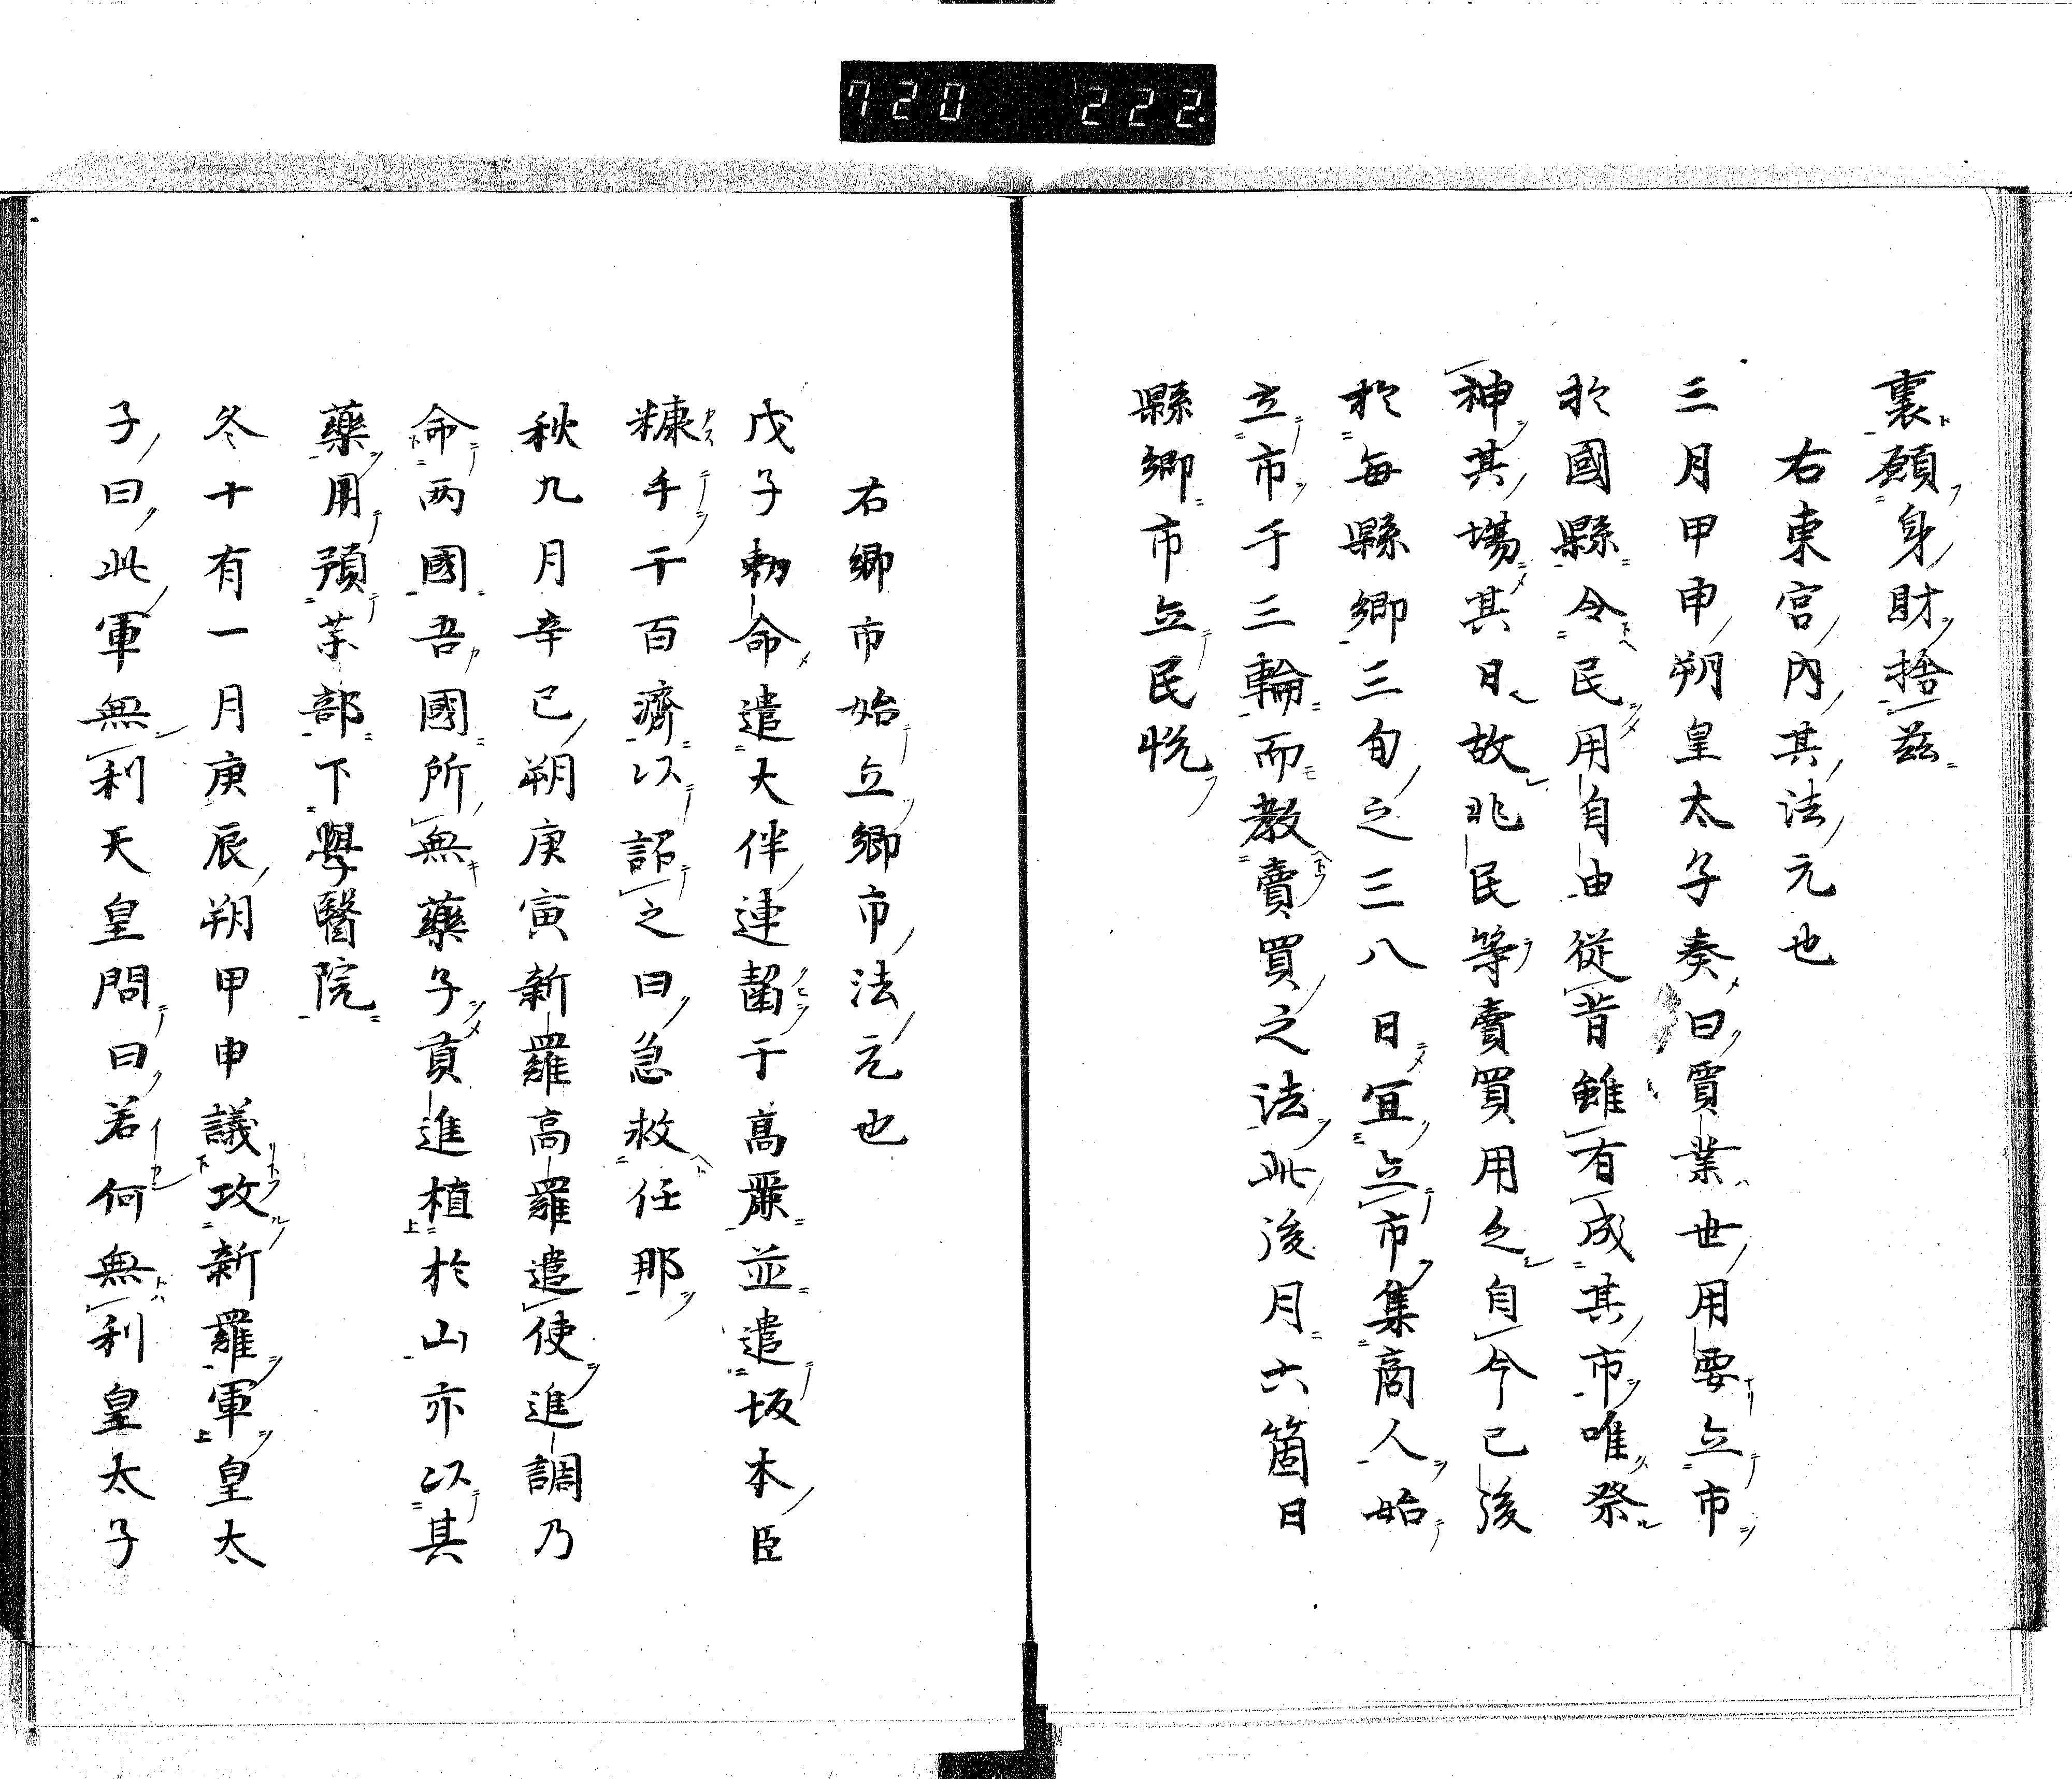 720 222
裏願身財捨茲
右東宮内其法元也
三月甲申朔皇太子奏曰賈業世用要立市
於國縣令民用自由從昔雖有成其市唯祭
神其場其日故兆民等賣買用乏自今已後
於每縣鄉三旬之三八日宜立市集商人始
立市于三輪而教賣買之法此後月六箇日
縣鄉市立民悅
右鄉市始立鄉市法元也
戊子勅命遣大伴連囓于高麗並遣坂本臣
糠手于百濟以詔之曰急救任那
秋九月辛巳朔庚寅新羅高羅遣使進調乃
命两國吾國所無藥子貢進植於山亦以其
藥用預茅部下學醫院
冬十有一月庚辰朔甲申議攻新羅軍皇太
子曰此軍無利天皇問曰若何無利皇太子